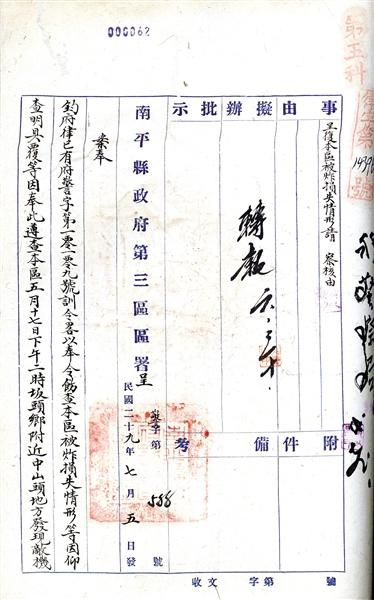 000062
第五科
事由
擬辦
批示
呈復本區被炸損失情形請 察核由
轉報 六.三十.
附件
備考
收文 字第 號
南平縣政府第三區區署呈
警字第 588 號
民國二十九年七月五日發
案奉
鈞府律已有府警字第一零一零九號訓令畧以奉令飭查本區被炸損失情形等因仰
查明具覆等因奉此遵查本區五月十七日下午二時坂頭鄉附近中山頭地方發現敵機